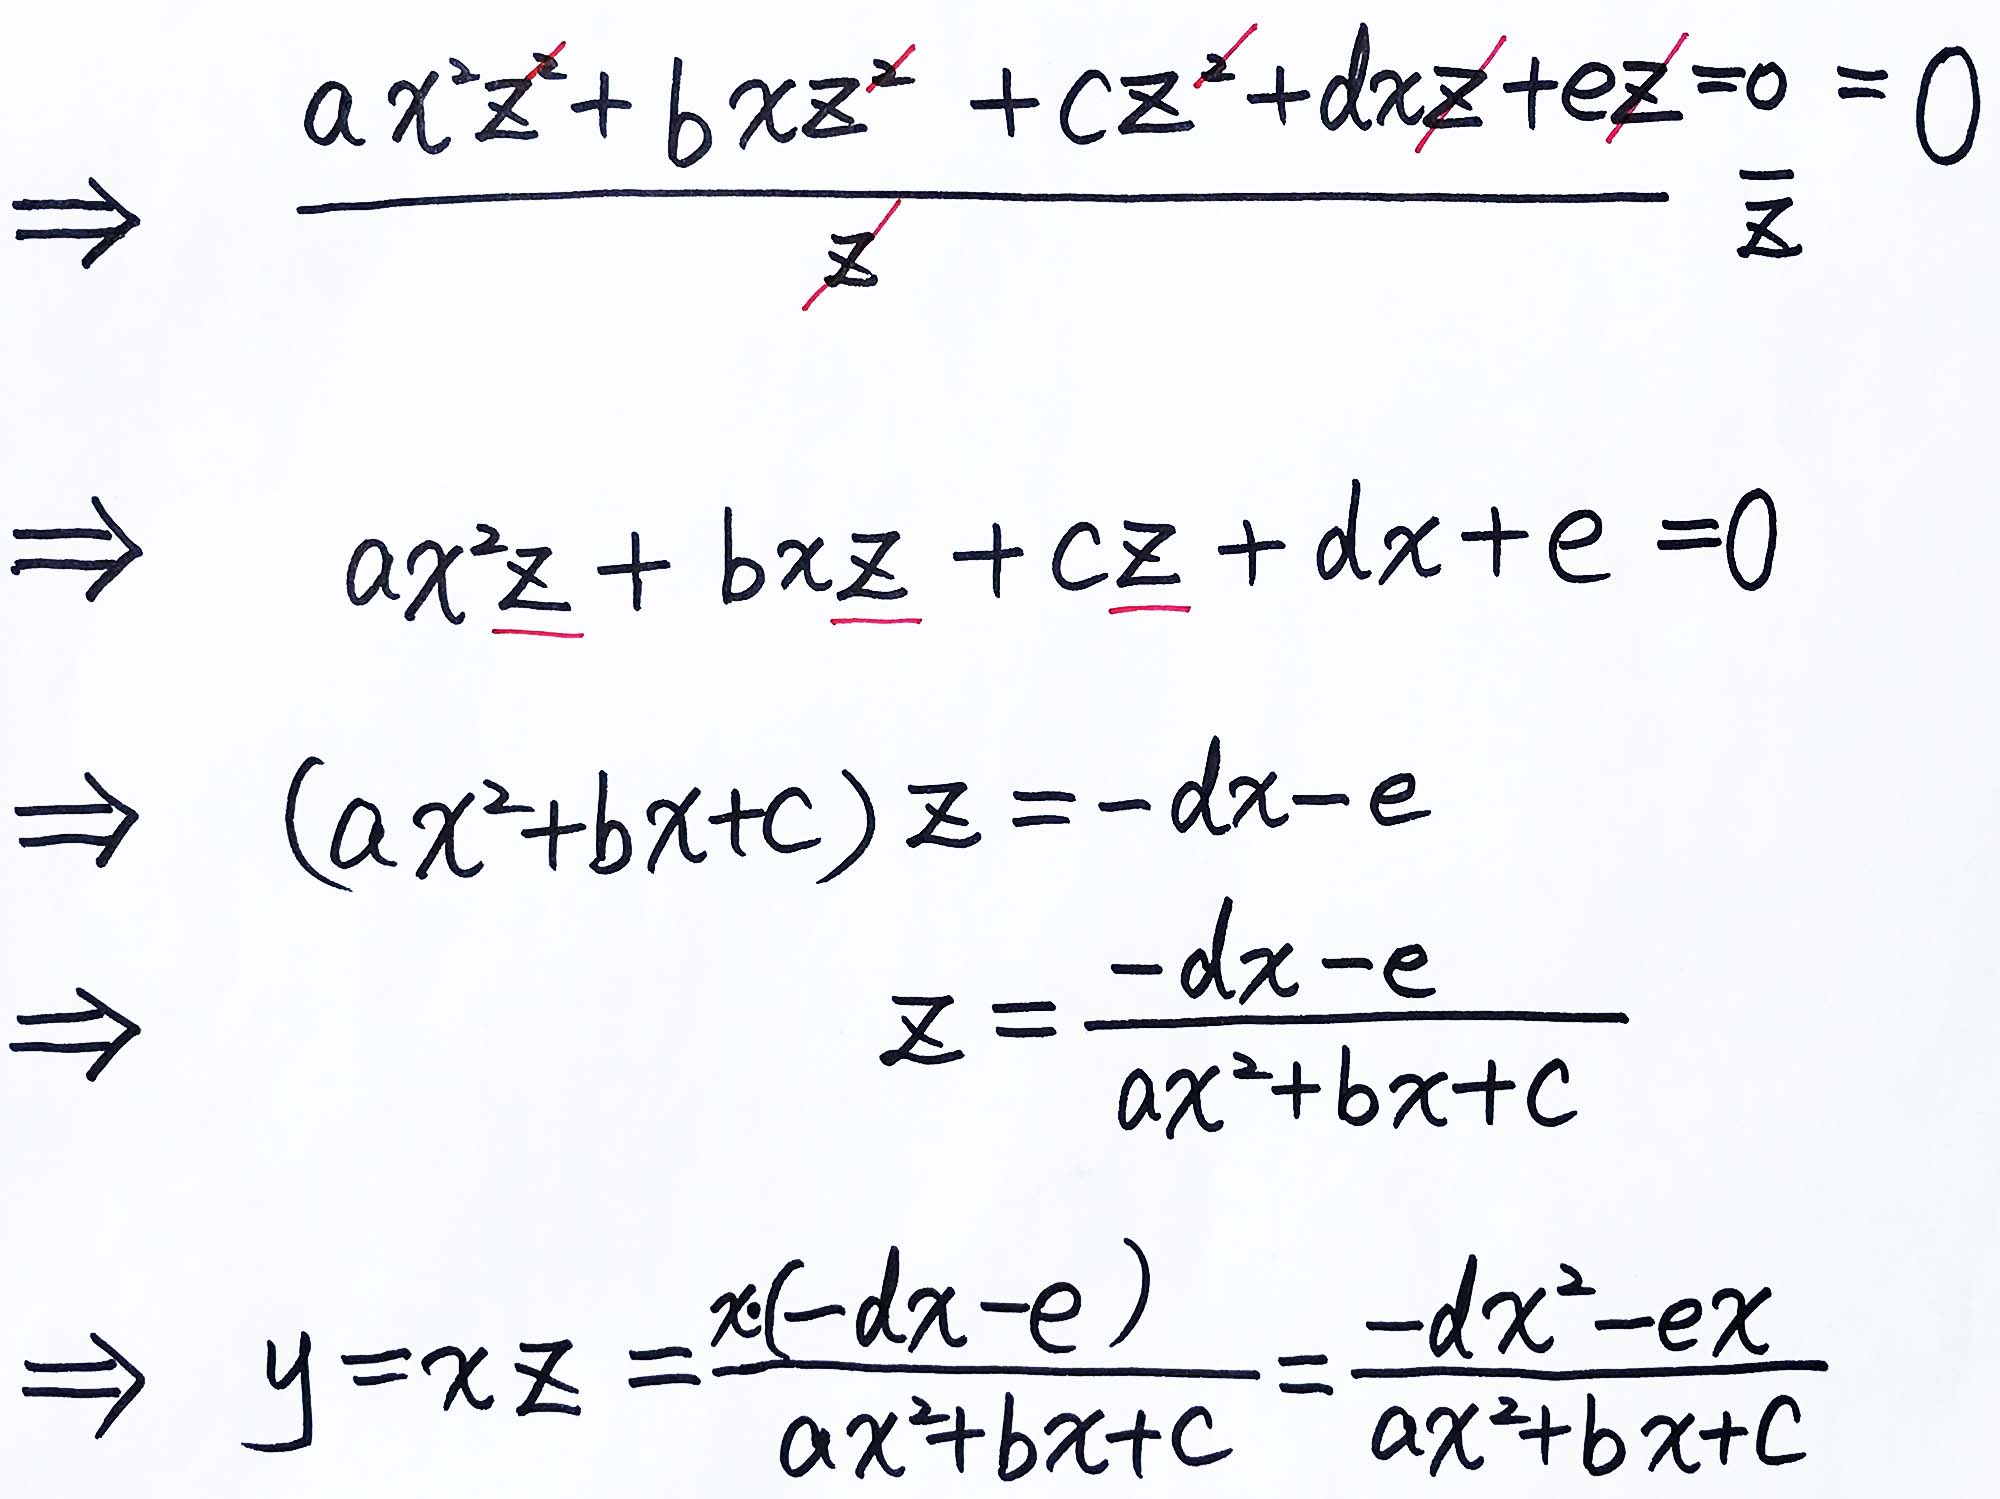 ax²z² + bxz² + cz² + dxz + ez = 0 = 0
⇒ ———— =
z z
⇒ ax²z + bxz + cz + dx + e = 0
⇒ (ax² + bx + c) z = -dx - e
⇒ z = \frac{-dx - e}{ax² + bx + c}
⇒ y = xz = \frac{x·(-dx - e)}{ax² + bx + c} = \frac{-dx² - ex}{ax² + bx + c}